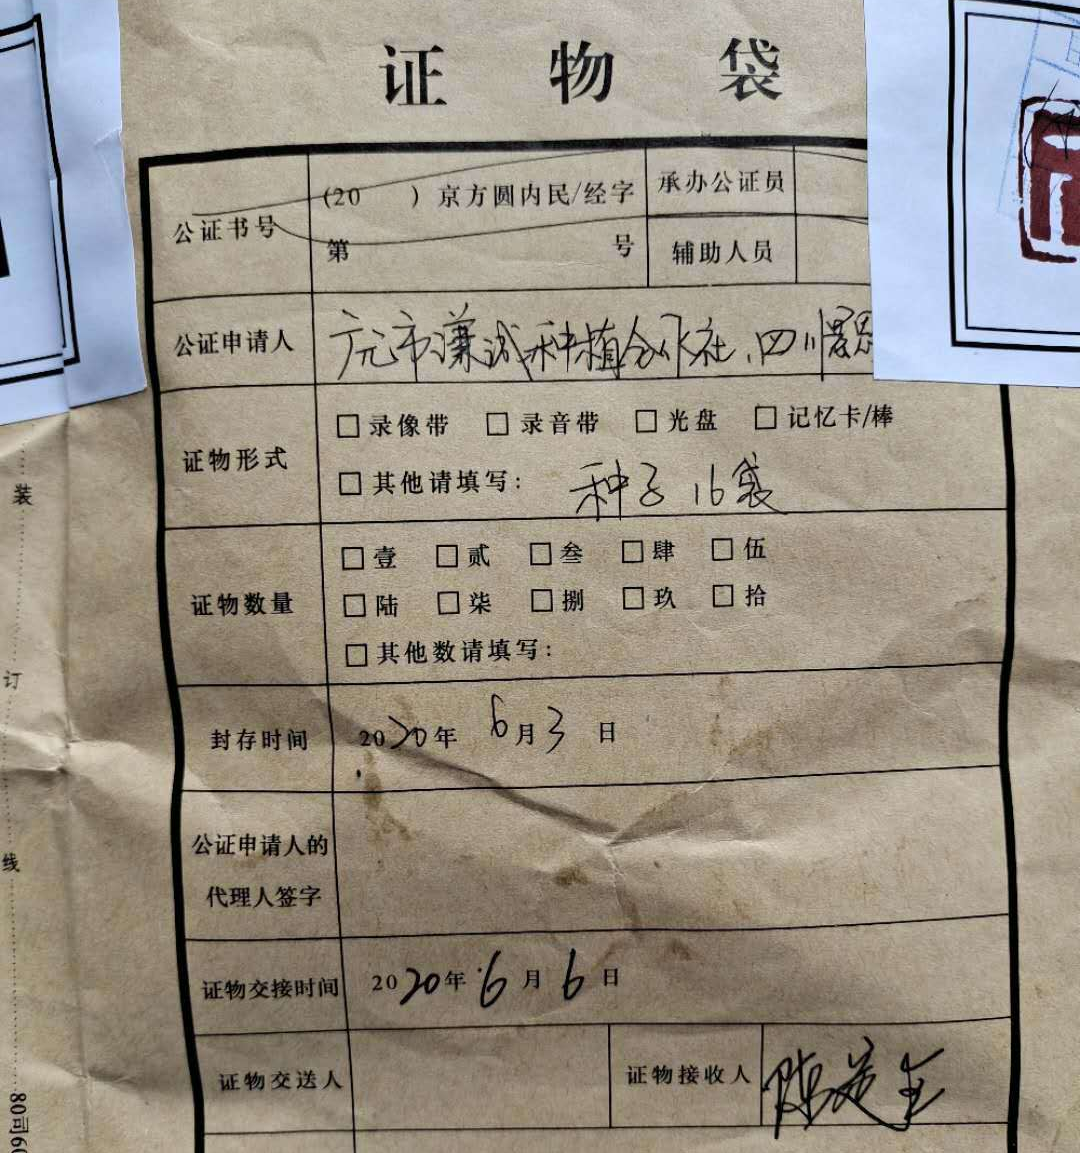 证物袋
公证书号
(20 ) 京方圆内民/经字
第 号
承办公证员
辅助人员
公证申请人
广元市谦诚种植合作社、四川
证物形式
□ 录像带 □ 录音带 □ 光盘 □ 记忆卡/棒
□ 其他请填写: 种子 16袋
证物数量
□ 壹 □ 贰 □ 叁 □ 肆 □ 伍
□ 陆 □ 柒 □ 捌 □ 玖 □ 拾
□ 其他数请填写:
封存时间
2020年 6月3日
公证申请人的
代理人签字
证物交接时间
2020年6月6日
证物交送人
证物接收人
陈
装
订
线